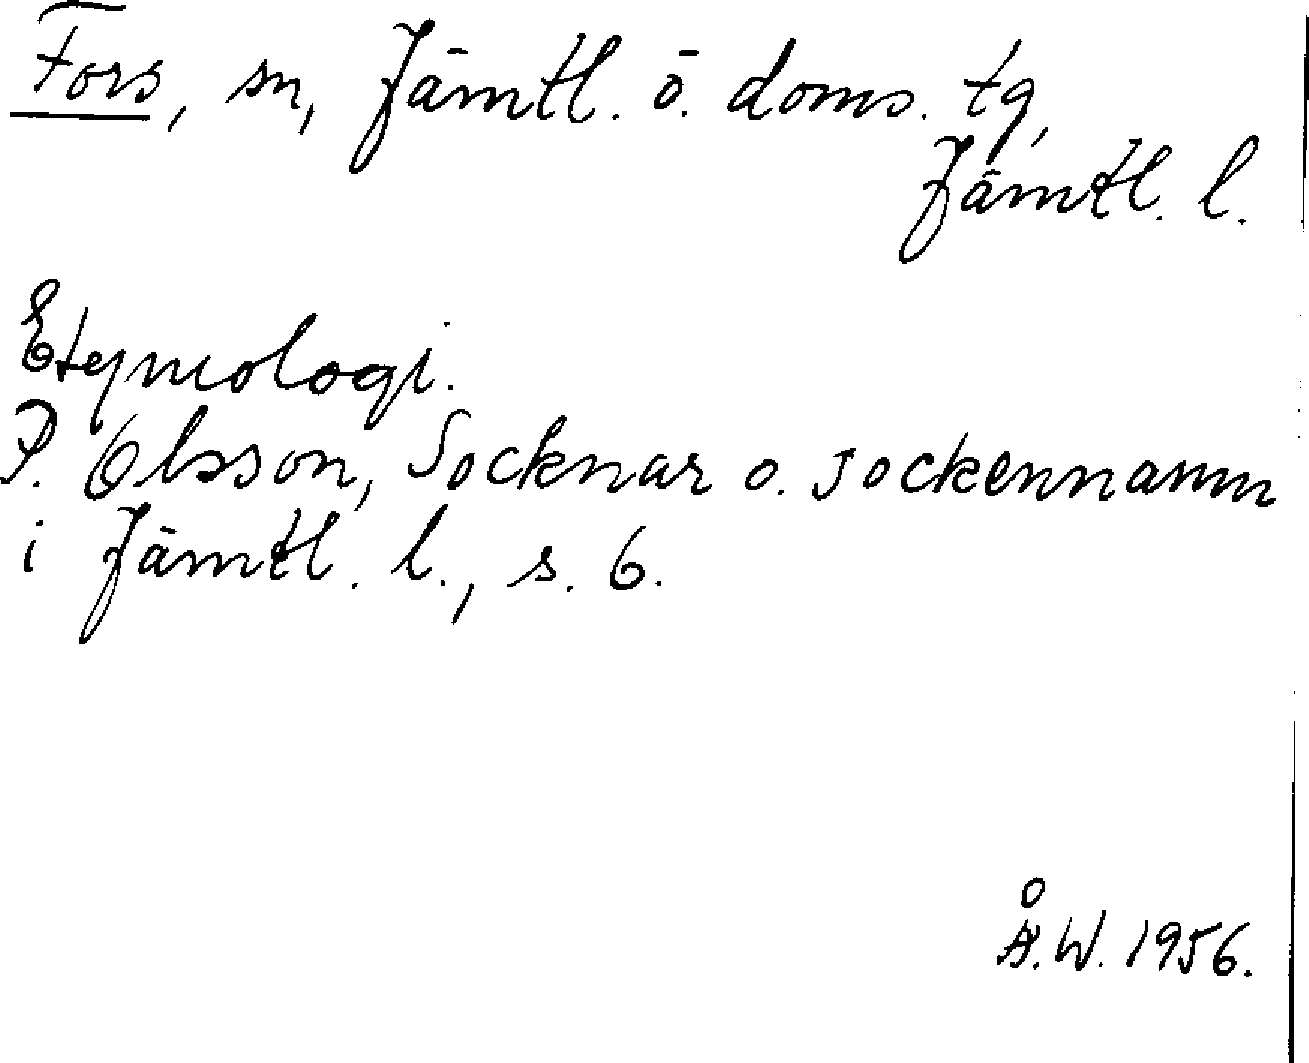 Fors, sn, Jämtl. ö. doms. tg,
Jämtl. l.
Etymologi.
P. Olsson, Socknar o. sockennamn
i Jämtl. l., s. 6.
Å.W. 1956.